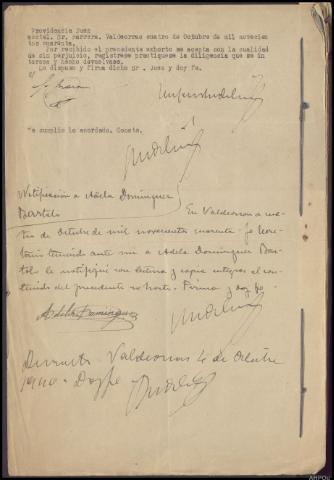 Providencia Juez
mental. Sr. Barrera. Valdeorras cuatro de Octubre de mil novecien
tos cuarenta.
Por recibido el precedente exhorto se acepta con la cualidad
de sin perjuicio, registrese practiquese la diligencia que se in
teresa y hecho devuelvase.
Lo dispuso y firma dicho Sr. Juez y doy fe.
Se cumplio lo acordado. Consta.
Notificación a Adela Dominguez
Bartolo
En Valdeorras a cua-
tro de Octubre de mil novecientos cuarenta yo
teniendo ante mi a Adela Dominguez Bar-
tolo le notifiqué con lectura y copia integra el con-
tenido del precedente exhorto. Firma y doy fe.
Adela Dominguez
Valdeorras 4 de Octubre
1940 - Doy fe
AHPOU